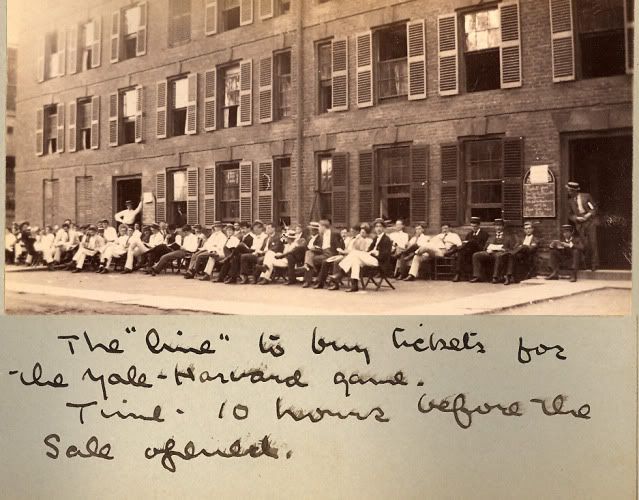 The "line" to buy tickets for
the Yale-Harvard game.
Time - 10 hours before the
Sale opened.